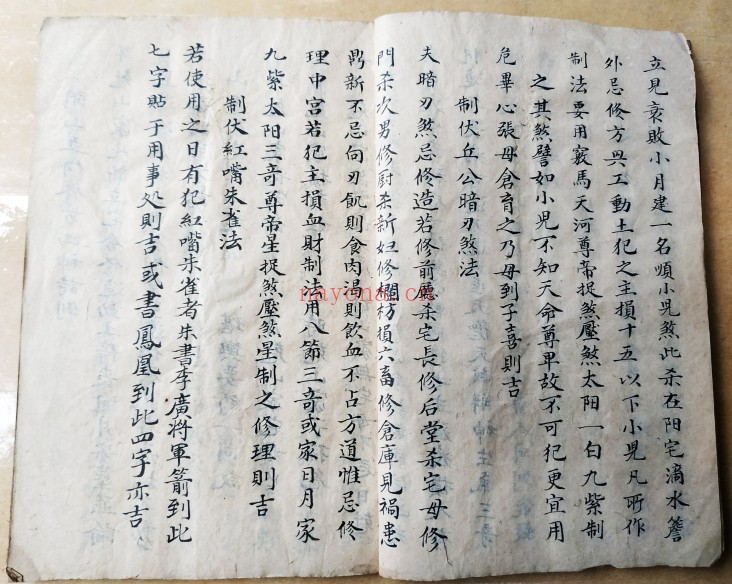 立見衰敗小月建一名煩小兒煞此杀在阳宅滴水簷
外忌修方興工動土犯之主損十五以下小兒凡所作
制法要用竅馬天河尊帝捉煞壓煞太阳一白九紫制
之其煞譬如小兒不知天命尊卑故不可犯更宜用
危畢心張母倉育之乃母到子喜則吉
制伏丘公暗刃煞法
夫暗刃煞忌修造若修前厅杀宅長修后堂杀宅母修
門杀次男修厨杀新妇修欄枋損六畜修倉庫見禍患
鼎新不忌向刃飢則食肉渴則飲血不占方道惟忌修
理中宮若犯主損血財制法用八節三奇或家日月家
九紫太阳三奇尊帝星捉煞壓煞星制之修理則吉
制伏紅嘴朱雀法
若使用之日有犯紅嘴朱雀者朱書李廣將軍箭到此
七字貼于用事処則吉或書鳳凰到此四字亦吉
nayona.cn